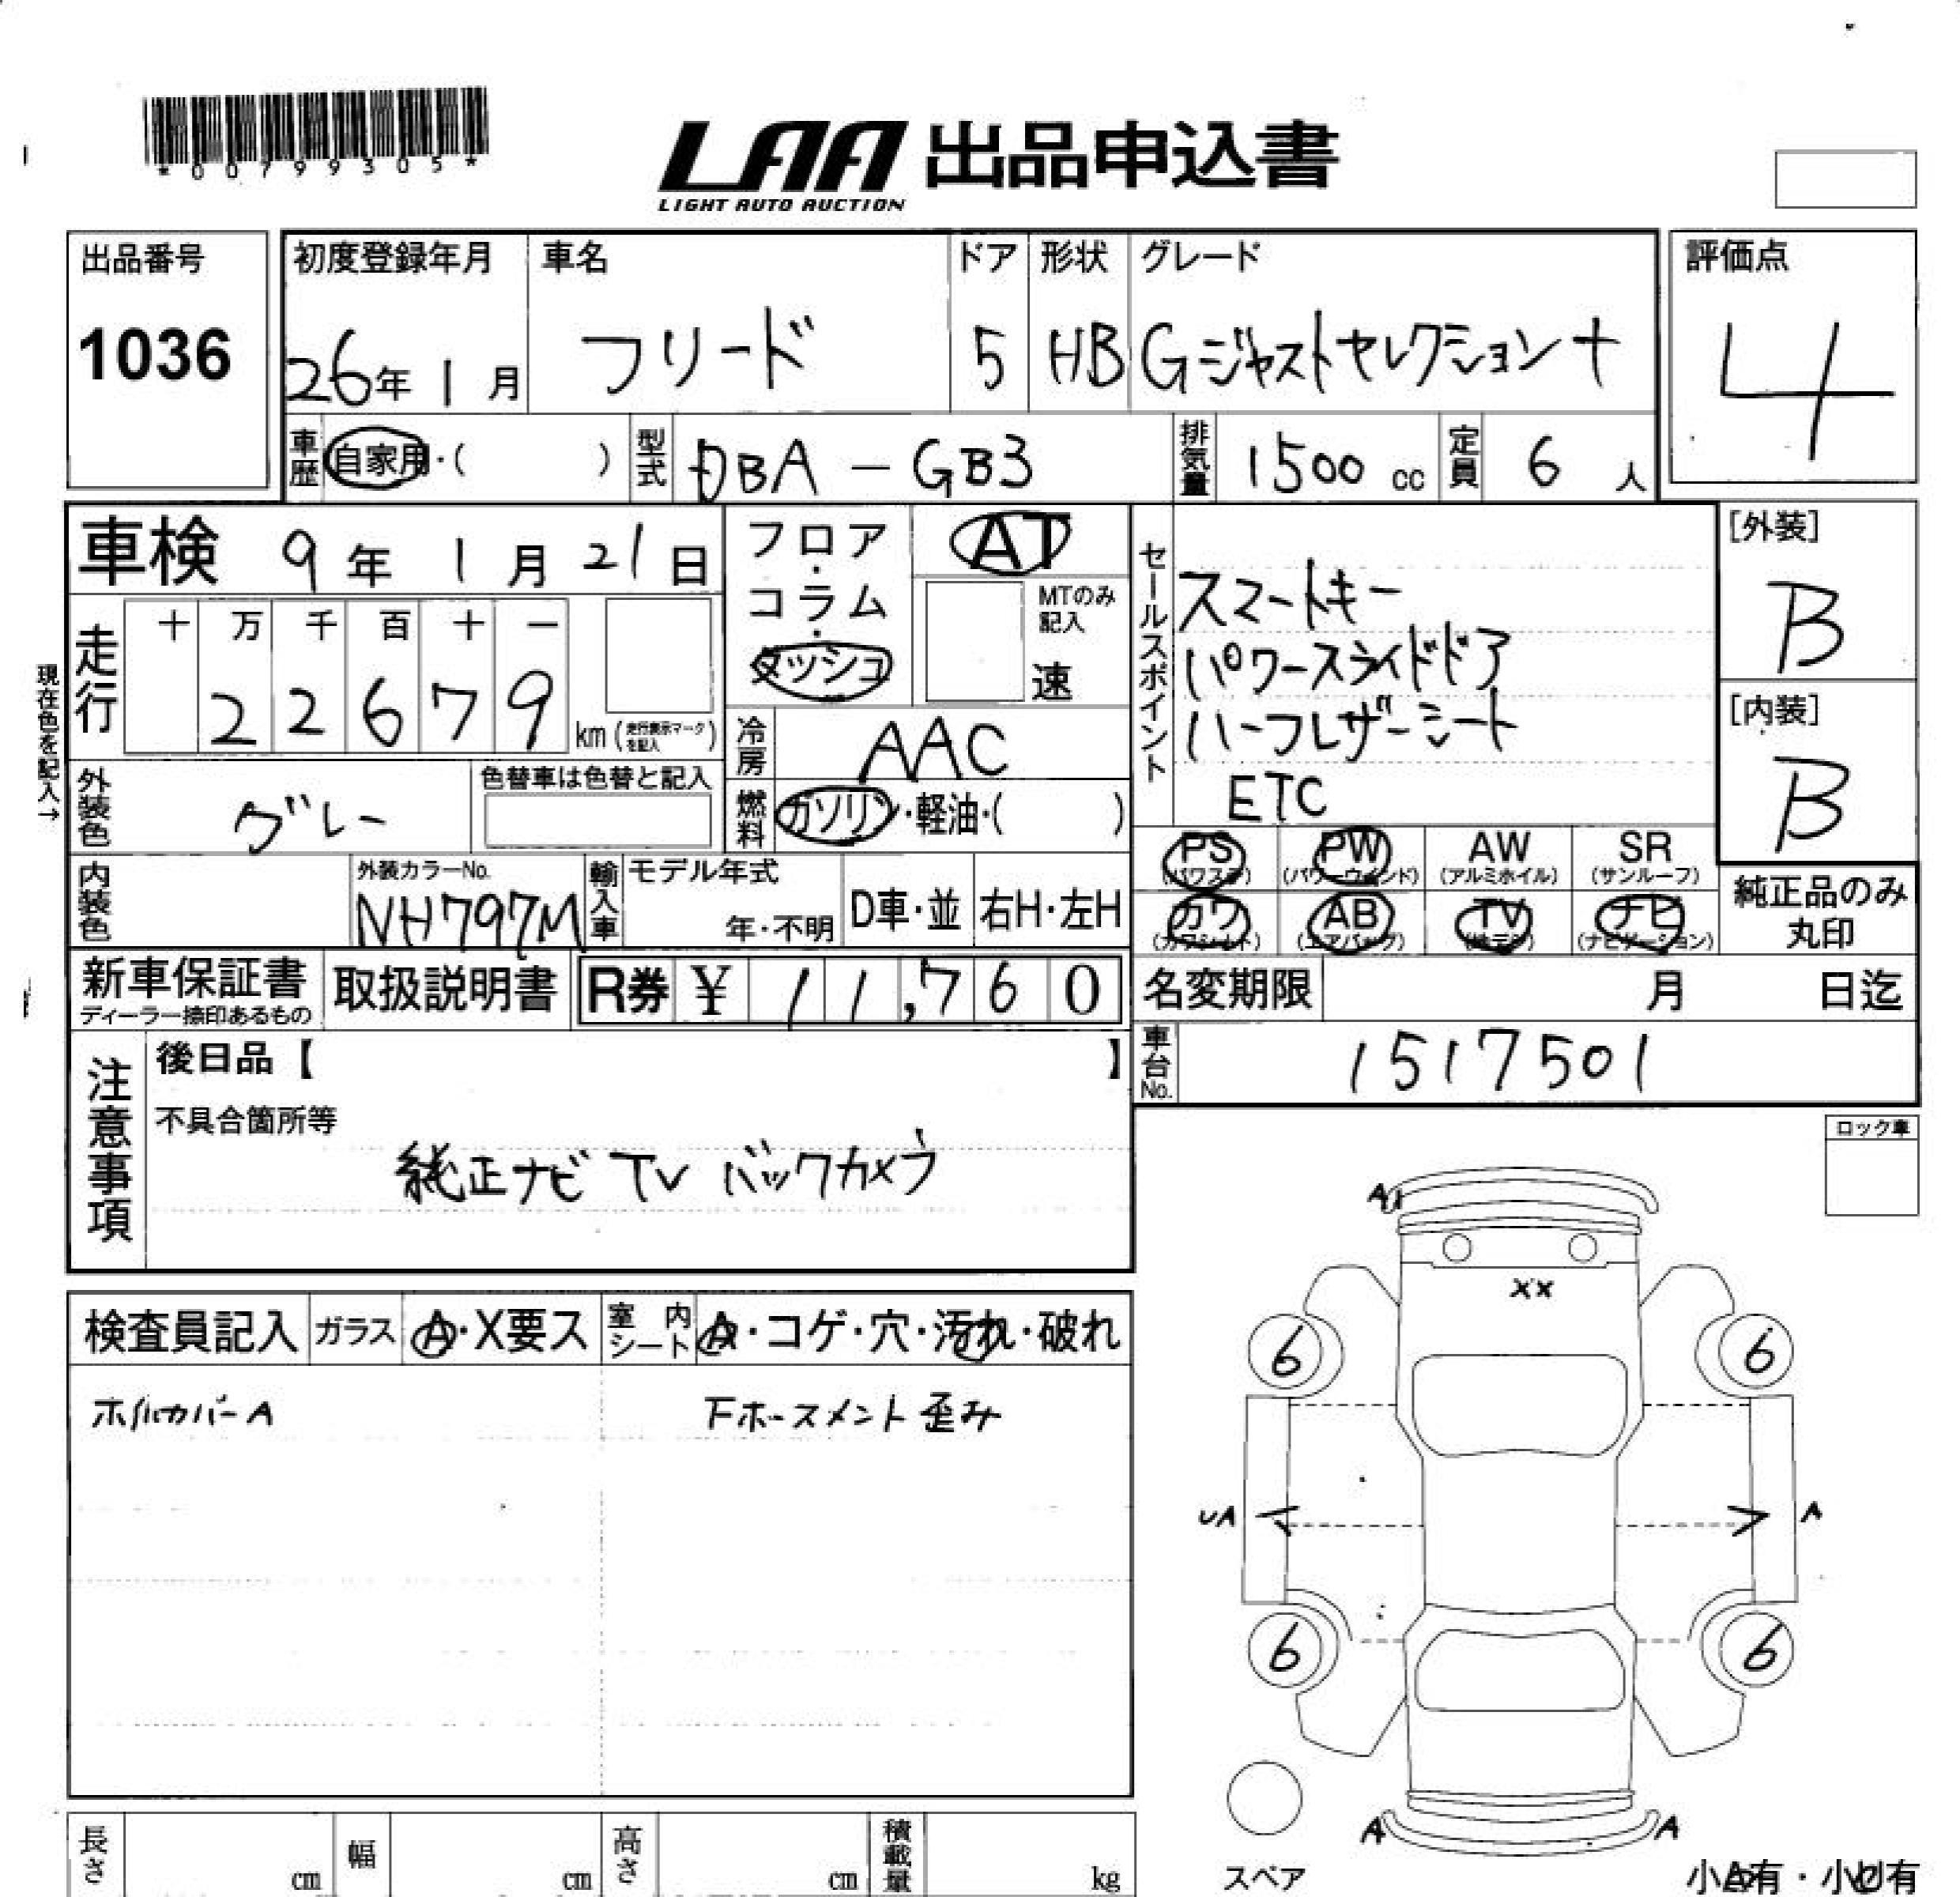 *00799305*
LAA 出品申込書
LIGHT AUTO AUCTION
出品番号
1036
初度登録年月
26年 1月
車名
フリード
ドア
5
形状
HB
グレード
Gジャストセレクション+
評価点
4
車歴
自家用・( )
型式
DBA-GB3
排気量
1500 cc
定員
6 人
車検 9年 1月 21日
フロア・コラム・ダッシュ
AT
MTのみ記入
速
セールスポイント
スマートキー
パワースライドドア
ハーフレザーシート
ETC
[外装]
B
[内装]
B
現在色を記入→
走行
十 万 千 百 十 一
2 2 6 7 9
km (走行表示マークを記入)
冷房
AAC
燃料
ガソリン・軽油・( )
外装色
グレー
色替車は色替と記入
PS (パワステ)
PW (パワーウィンド)
AW (アルミホイル)
SR (サンルーフ)
カワ (カワシート)
AB (エアバッグ)
TV (地デジ)
ナビ (ナビゲーション)
純正品のみ丸印
内装色
外装カラーNo.
NH797M
輸入車
モデル年式
年・不明
D車・並
右H・左H
新車保証書
ディーラー捺印あるもの
取扱説明書
R券 ¥ 11,760
名変期限 月 日迄
車台No.
1517501
注意事項
後日品【 】
不具合箇所等
純正ナビ TV バックカメラ
ロック車
検査員記入
ガラス A・X要ス
室内シート A・コゲ・穴・汚れ・破れ
ホイルカバーA
下ホースメント歪み
A1
XX
6 6
UA A
6 6
A A
スペア
小A有・小U有
長さ cm
幅 cm
高さ cm
積載量 kg